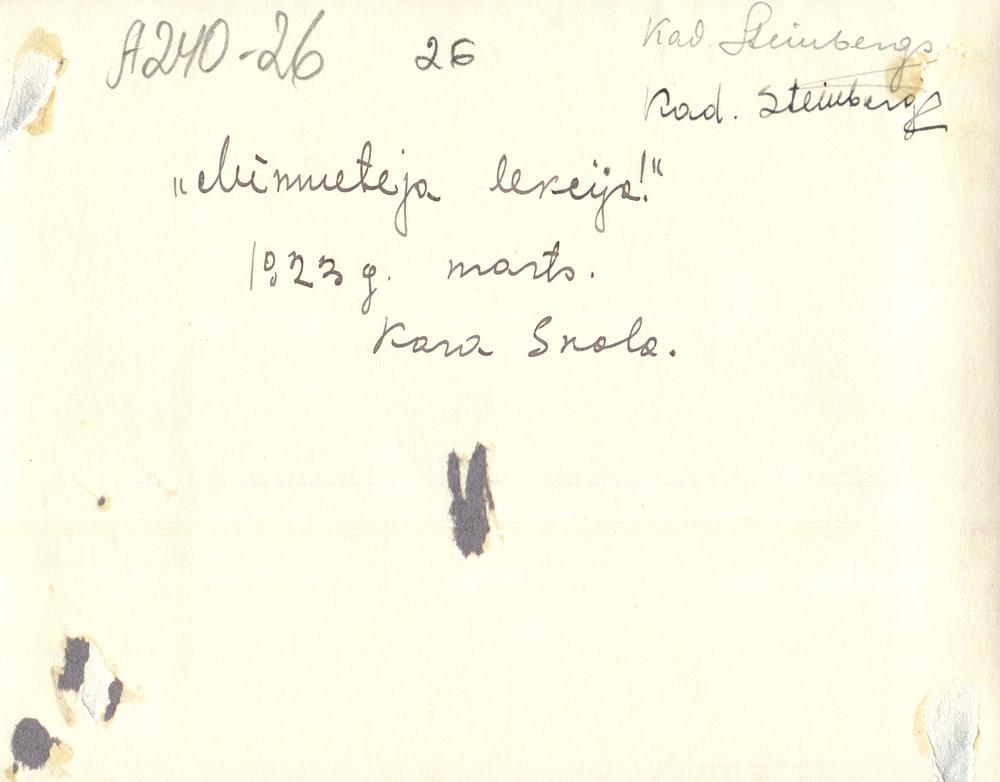 A240-26 26 Kad. Steinbergs
Kad. Steinbergs
„Mīnmetēja lekcija!“
1923 g. marts.
Kara Skola.